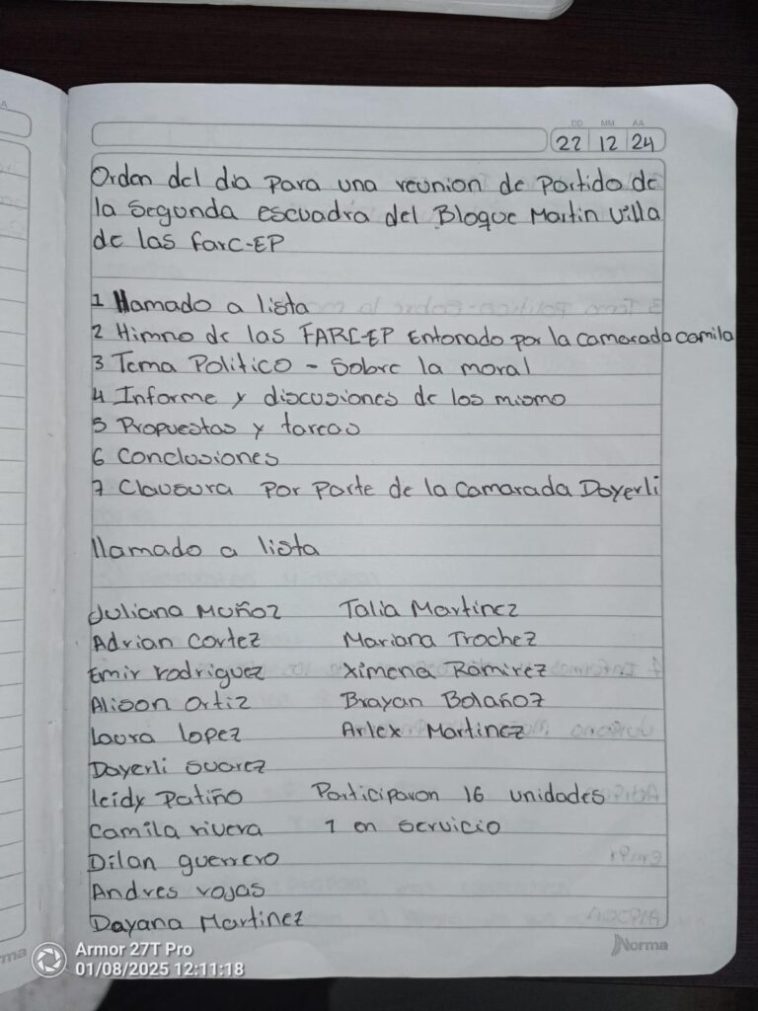 DD MM AA
22 12 24
Orden del dia para una reunion de Partido de
la Segunda escuadra del Bloque Martin Villa
de las farc-EP
1 llamado a lista
2 Himno de las FARC-EP Entonado por la camarada camila
3 Tema Politico - Sobre la moral
4 Informe y discusiones de los mismo
5 Propuestas y tareas
6 Conclusiones
7 Clausura Por Parte de la Camarada Dayerli
llamado a lista
Juliana Muñoz Talia Martinez
Adrian Cortez Mariana Trochez
Emir rodriguez Ximena Ramirez
Alison Ortiz Brayan Bolañoz
Laura lopez Arlex Martinez
Dayerli suarez
leidy Patiño Participaron 16 unidades
Camila rivera 1 en servicio
Dilan guerrero
Andres rojas
Dayana Martinez
Norma
Armor 27T Pro
01/08/2025 12:11:18